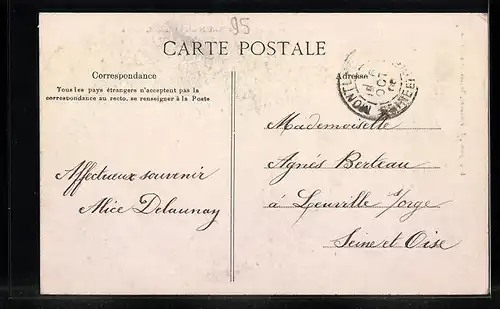 95
CARTE POSTALE
Correspondance
Tous les pays étrangers n'acceptent pas la
correspondance au recto, se renseigner à la Poste
Adresse
MONTL
OCT
Affectueux souvenir
Alice Delaunay
Mademoiselle
Agnés Berteau
à Leuville s/orge
Seine et Oise